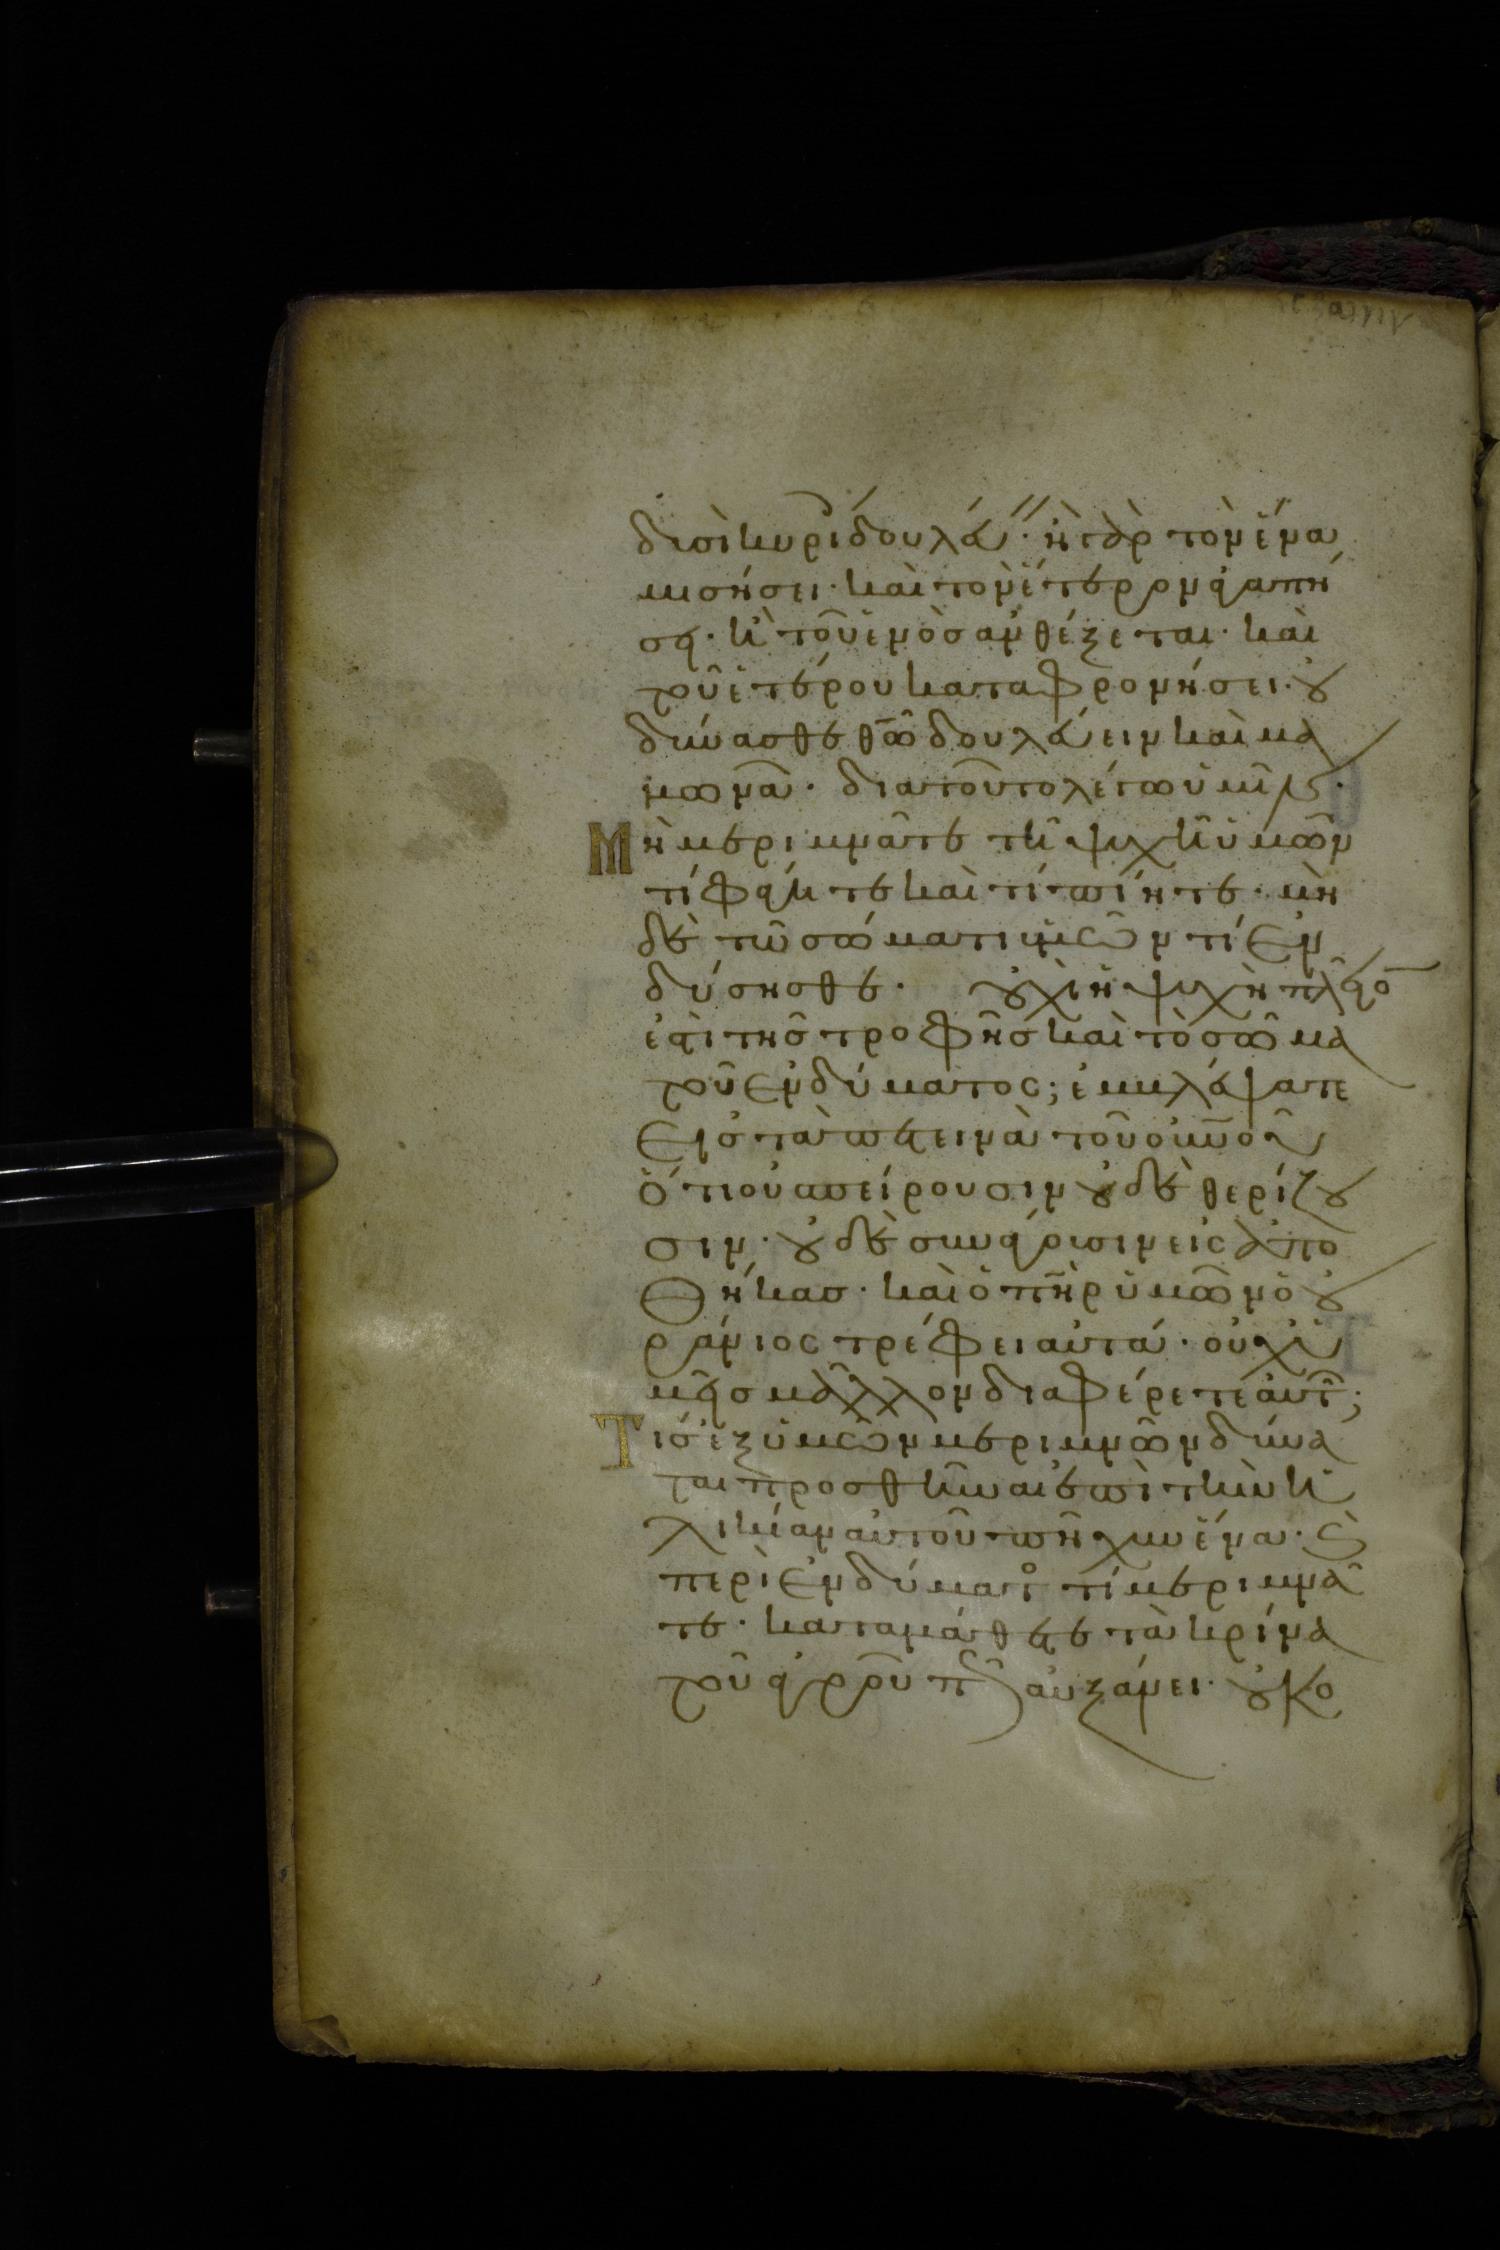 δυσὶ κυρίοις δουλεύειν· ἢ γὰρ τὸν ἕνα
μισήσει· καὶ τὸν ἕτερον ἀγαπή
σει· ἢ τοῦ ἑνὸς ἀνθέξεται· καὶ
τοῦ ἑτέρου καταφρονήσει· οὐ
δύνασθε θῶ δουλεύειν καὶ μα
μωνᾶ· διατοῦτο λέγω ὑμῖν·
Μὴ μεριμνᾶτε τῆ ψυχῆ ὑμῶν
τί φάγητε καὶ τί πίητε· μη
δὲ τῶ σώματι ὑμῶν τί ἐν
δύσησθε· οὐχὶ ἡ ψυχὴ πλεῖον
ἐστι τῆς τροφῆς καὶ τὸ σῶμα
τοῦ ἐνδύματος; ἐμβλέψατε
εἰς τὰ πετεινὰ τοῦ οὐνοῦ
ὅτι οὐ σπείρουσιν οὐδὲ θερίζου
σιν· οὐδὲ συνάγουσιν εἰς ἀπο
θήκας· καὶ ὁ πὴρ ὑμῶν ὁ οὐ
ράνιος τρέφει αὐτά· οὐχ ὑ
μεῖς μᾶλλον διαφέρετε αὐτῶν;
Τίς ἐξ ὑμῶν μεριμνῶν δύνα
ται προσθῆναι ἐπὶ τὴν ἡ
λικίαν αὐτοῦ πῆχυν ἕνα· καὶ
περὶ ἐνδύματος τί μεριμνᾶ
τε· καταμάθετε τὰ κρίνα
τοῦ ἀγροῦ πῶς αὐξάνει· οὐ κο